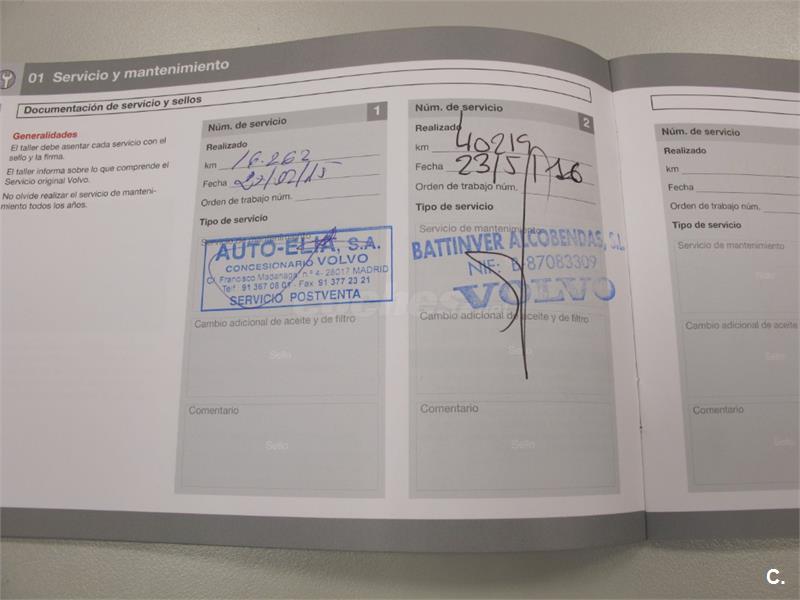 01 Servicio y mantenimiento
Documentación de servicio y sellos
Generalidades
El taller debe asentar cada servicio con el
sello y la firma.
El taller informa sobre lo que comprende el
Servicio original Volvo.
No olvide realizar el servicio de manteni-
miento todos los años.
Núm. de servicio
1
Realizado
km 16.262
Fecha 27/02/15
Orden de trabajo núm.
Tipo de servicio
Servicio de mantenimiento
AUTO-ELIA, S.A.
CONCESIONARIO VOLVO
C/. Francisco Madariaga, n.º 4 - 28017 MADRID
Telf. 91 367 08 01 - Fax 91 377 23 21
SERVICIO POSTVENTA
Cambio adicional de aceite y de filtro
Sello
Comentario
Sello
Núm. de servicio
2
Realizado
km 40219
Fecha 23/5/16
Orden de trabajo núm.
Tipo de servicio
Servicio de mantenimiento
BATTINVER ALCOBENDAS, S.L.
NIF: B-87083309
VOLVO
Cambio adicional de aceite y de filtro
Sello
Comentario
Sello
Núm. de servicio
Realizado
km
Fecha
Orden de trabajo núm.
Tipo de servicio
Servicio de mantenimiento
Sello
Cambio adicional de aceite
Sello
Comentario
Sello
coches
C.